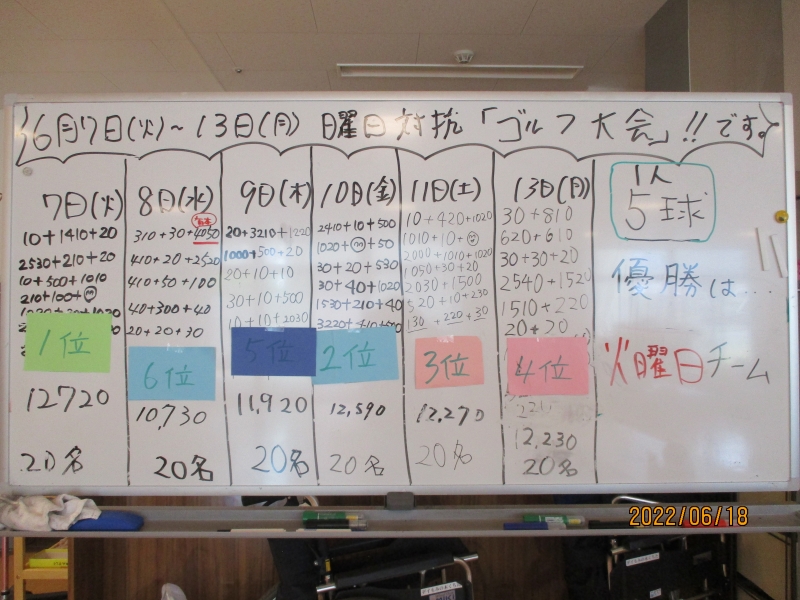 6月7日(火)~13日(月) 曜日対抗「ゴルフ大会」!!です。
7日(火)
10+1410+20
2530+210+20
10+500+1010
210+100+
1位
12720
20名
8日(水)
310+30+4050
410+20+2520
410+50+100
40+300+40
20+20+30
6位
10,730
20名
9日(木)
20+3210+1220
1000+500+20
20+10+10
30+10+500
10+10+2030
5位
11,920
20名
10日(金)
2410+10+500
1020+ +50
30+20+530
30+40+1020
1530+210+40
3220+410+500
2位
12,590
20名
11日(土)
10+420+1020
1010+10+
2000+1010+1020
1050+30+20
2030+1500
520+10+230
130+220+30
3位
12,270
20名
13日(月)
30+810
620+610
30+30+20
2540+1520
1510+220
20+20
4位
12,230
20名
1人
5球
優勝は...
火曜日チーム
2022/06/18